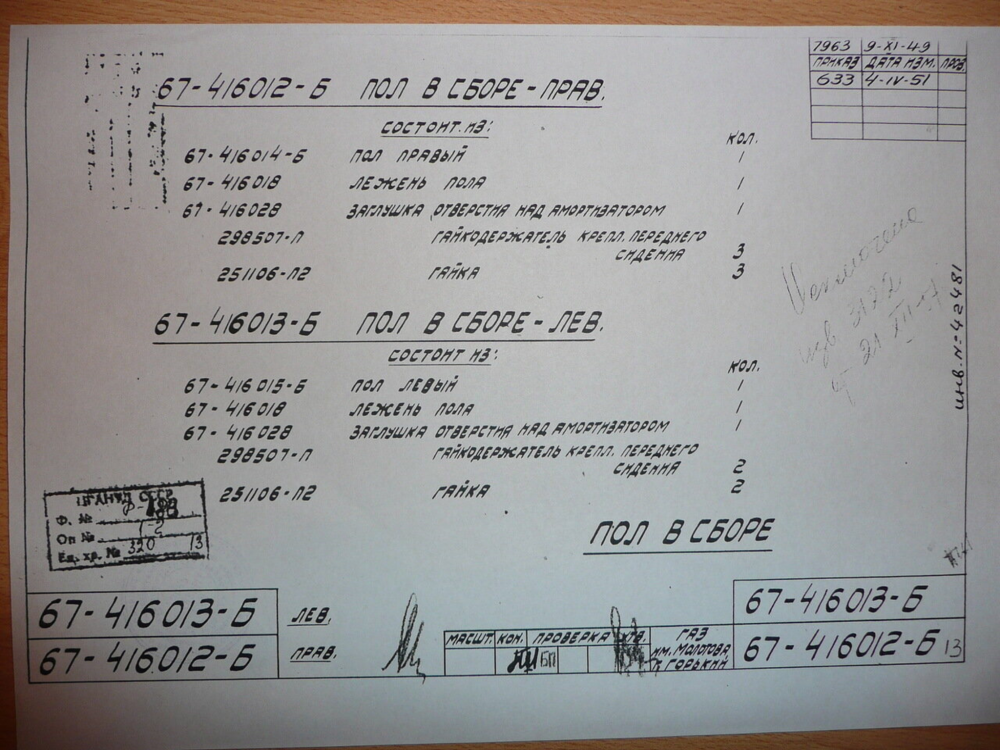 7963 9-XI-49
ПРИКАЗ ДАТА ИЗМ. ПРОВ.
633 4-IV-51
67-416012-Б ПОЛ В СБОРЕ-ПРАВ.
СОСТОИТ ИЗ:
КОЛ.
67-416014-Б ПОЛ ПРАВЫЙ 1
67-416018 ЛЕЖЕНЬ ПОЛА 1
67-416028 ЗАГЛУШКА ОТВЕРСТИЯ НАД АМОРТИЗАТОРОМ 1
298507-П ГАЙКОДЕРЖАТЕЛЬ КРЕПЛ. ПЕРЕДНЕГО
СИДЕНИЯ 3
251106-П2 ГАЙКА 3
67-416013-Б ПОЛ В СБОРЕ-ЛЕВ.
СОСТОИТ ИЗ:
КОЛ.
67-416015-Б ПОЛ ЛЕВЫЙ 1
67-416018 ЛЕЖЕНЬ ПОЛА 1
67-416028 ЗАГЛУШКА ОТВЕРСТИЯ НАД АМОРТИЗАТОРОМ 1
298507-П ГАЙКОДЕРЖАТЕЛЬ КРЕПЛ. ПЕРЕДНЕГО
СИДЕНИЯ 2
251106-П2 ГАЙКА 2
ИНВ. №=42481
изв 3172
21 XII
ЦГАНТД СССР
Ф. №
Оп №
Ед. хр. № 320 13
ПОЛ В СБОРЕ
67-416013-Б ЛЕВ.
67-416012-Б ПРАВ.
МАСШТ. КОН. ПРОВЕРКА УТВ.
БП
ГАЗ
ИМ. МОЛОТОВА
Г. ГОРЬКИЙ
67-416013-Б
67-416012-Б 13